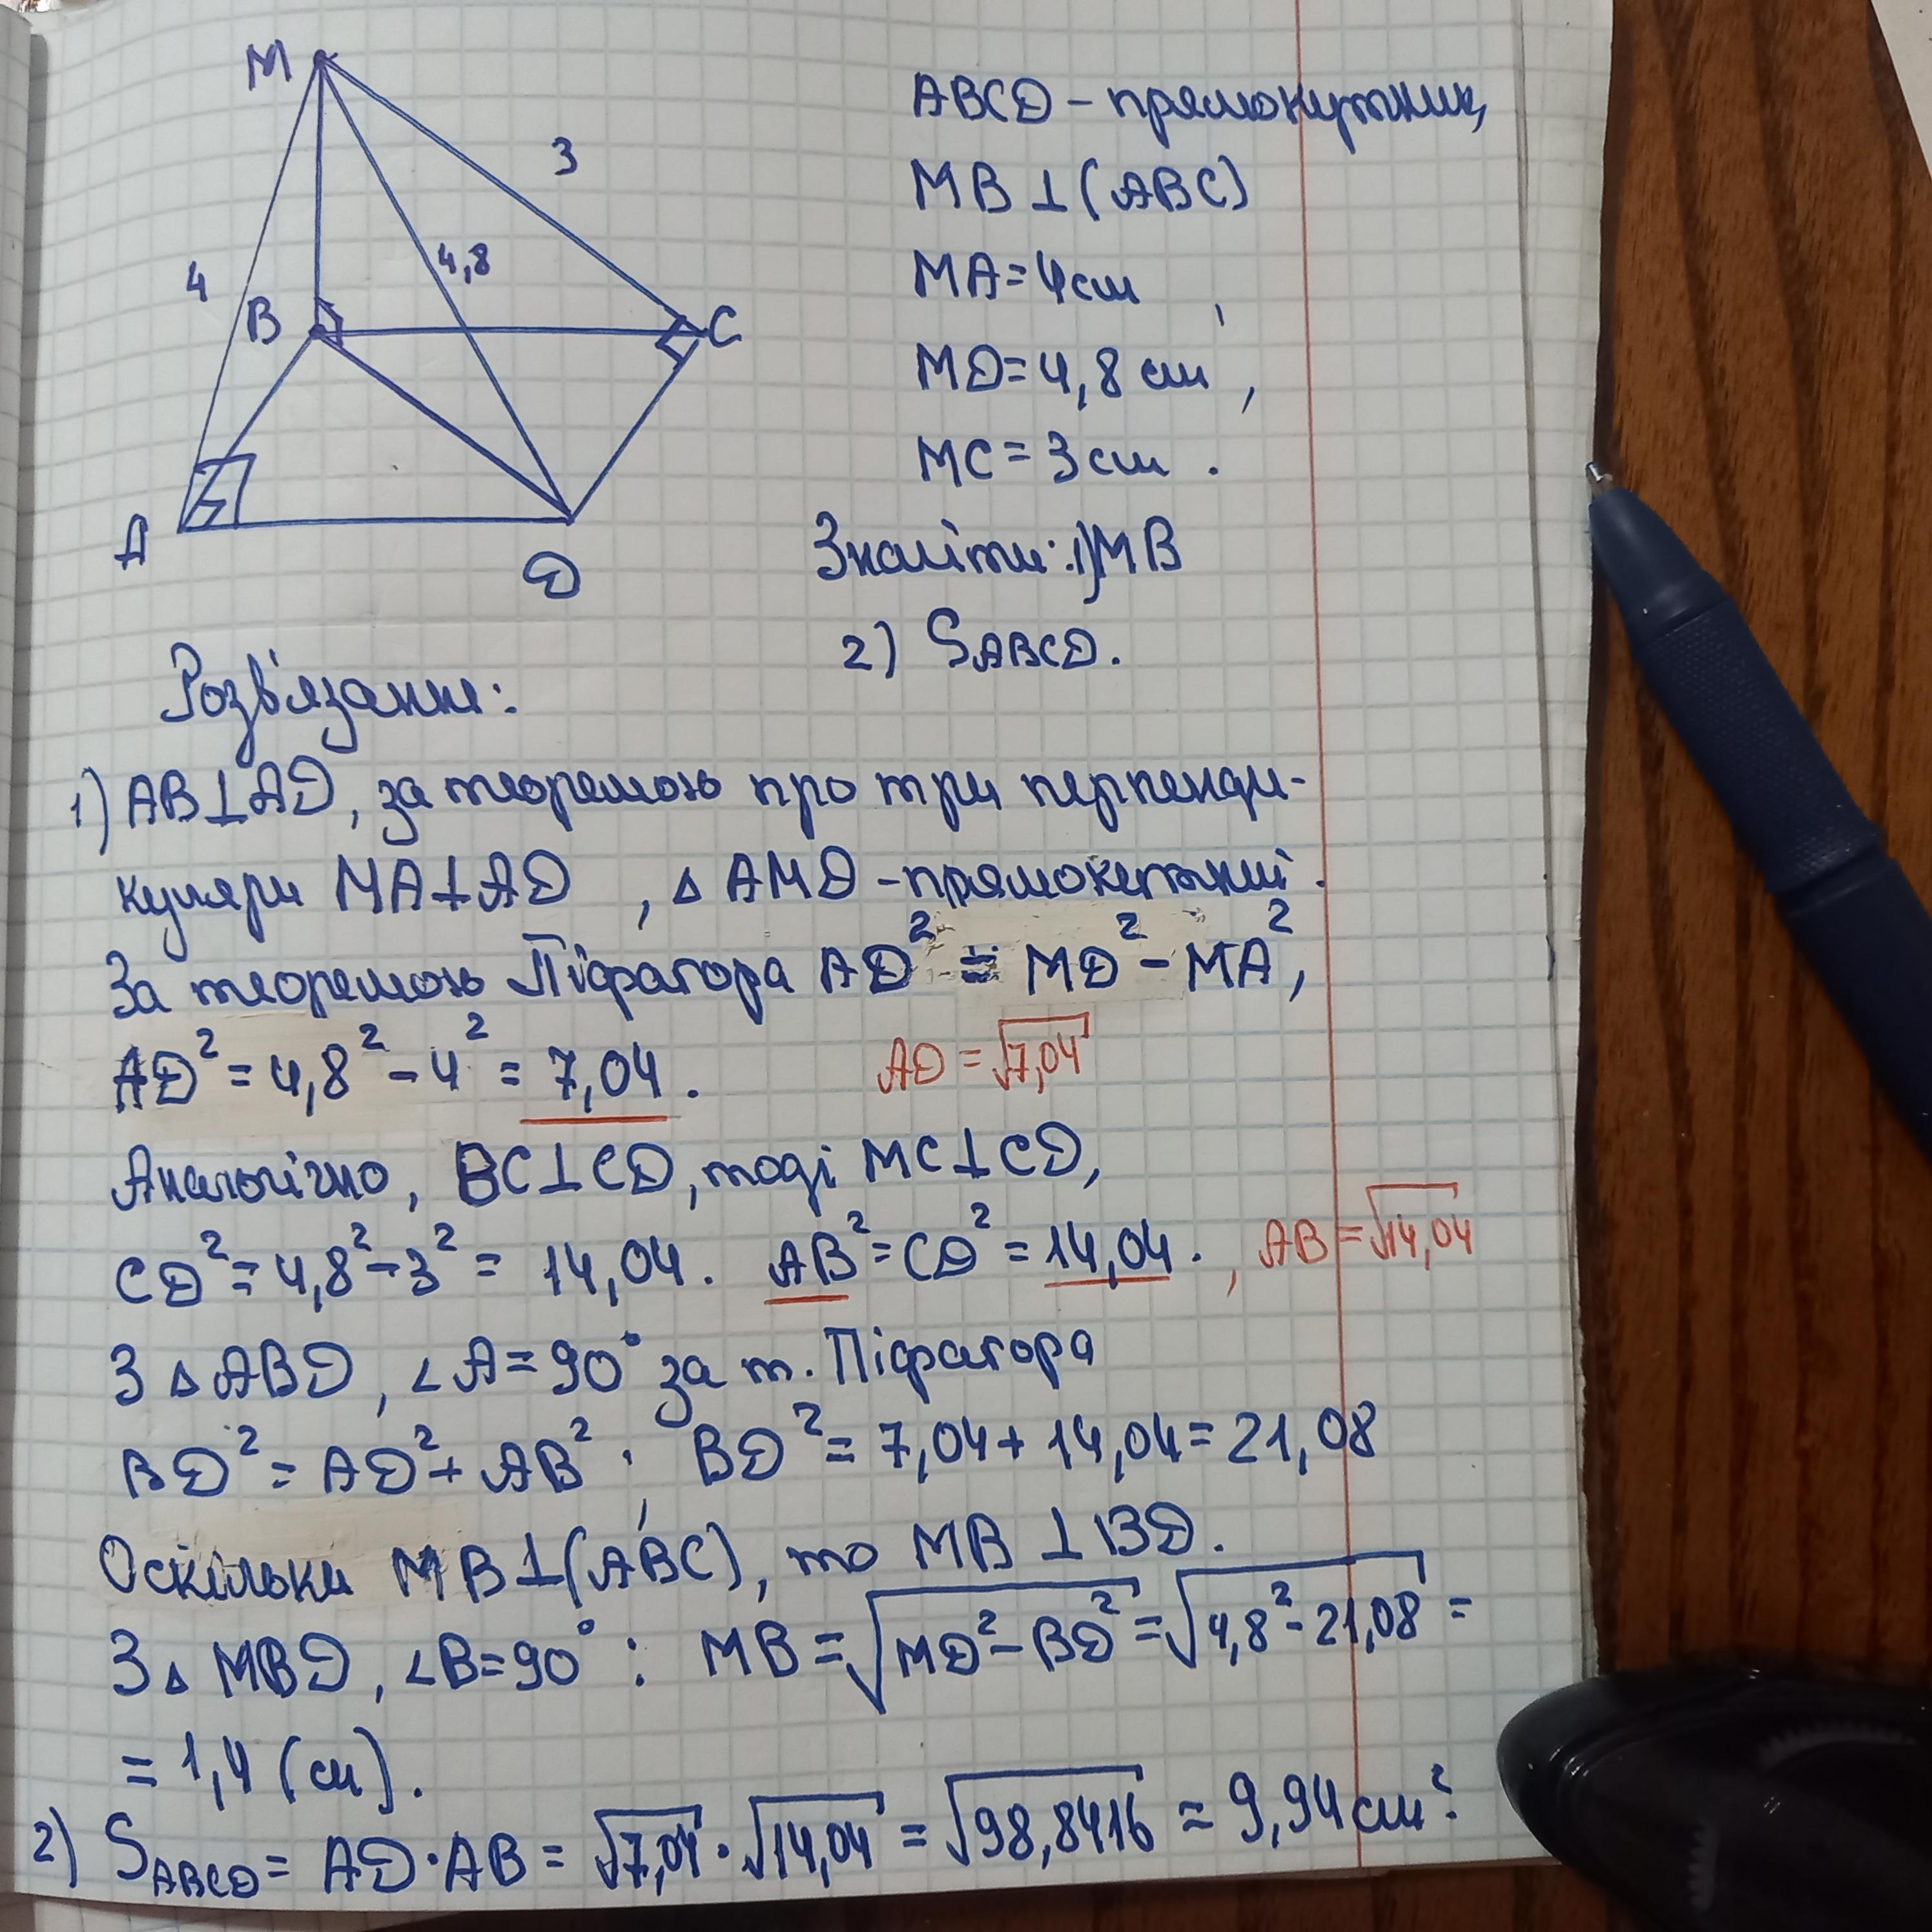 M
3
4
4,8
B
C
A
D
ABCD – прямокутник,
MB⊥(ABC)
MA=4см ,
MD=4,8 см ,
MC=3см .
Знайти: 1) MB
2) SABCD.
Розв'язання:
1) AB⊥AD, за теоремою про три перпенди-
куляри MA⊥AD , △ AMD – прямокутний.
За теоремою Піфагора AD² = MD² – MA²,
AD² = 4,8² – 4² = 7,04 . AD = √7,04
Аналогічно, BC⊥CD, тоді MC⊥CD,
CD² = 4,8² – 3² = 14,04. AB² = CD² = 14,04 . , AB = √14,04
З △ ABD, ∠A = 90° за т. Піфагора
BD² = AD² + AB² ; BD² = 7,04 + 14,04 = 21,08
Оскільки MB⊥(ABC), то MB ⊥ BD.
З △ MBD, ∠B = 90° : MB = √MD² – BD² = √4,8² – 21,08 =
= 1,4 (см).
2) SABCD = AD · AB = √7,04 · √14,04 = √98,8416 ≈ 9,94 см²